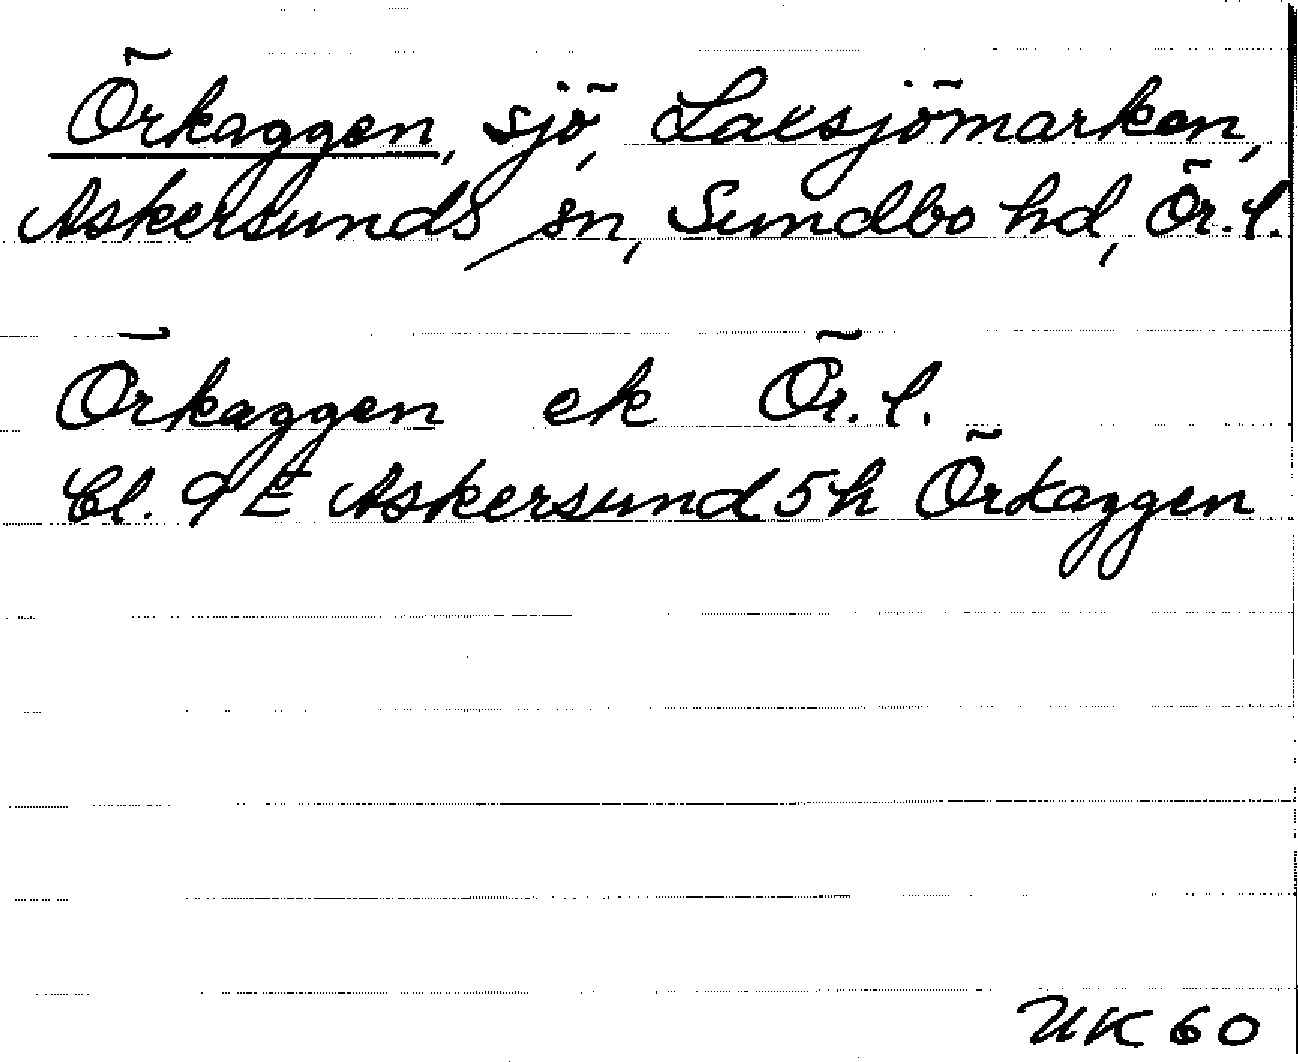 Örkaggen, sjö, Laxsjömarken,
Askersunds sn, Sundbo hd, Ör. l.
Örkaggen ek Ör. l.
Bl. 9 E Askersund 5h Örkaggen
UK 60